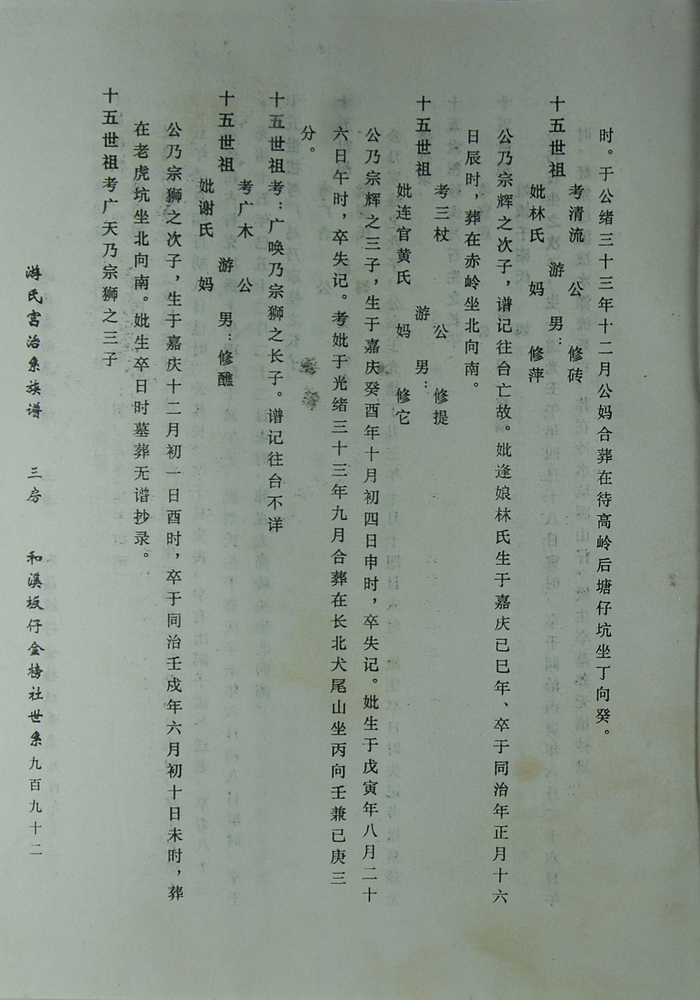 时。于公绪三十三年十二月公妈合葬在待高岭后塘仔坑坐丁向癸。
十五世祖 考清流 公 修砖
游 男：
妣林氏 妈 修萍
公乃宗辉之次子，谱记往台亡故。妣逢娘林氏生于嘉庆已巳年、卒于同治年正月十六
日辰时，葬在赤岭坐北向南。
十五世祖 考三杖 公 修提
游 男：
妣连官黄氏 妈 修它
公乃宗辉之三子，生于嘉庆癸酉年十月初四日申时，卒失记。妣生于戊寅年八月二十
六日午时，卒失记。考妣于光绪三十三年九月合葬在长北犬尾山坐丙向壬兼已庚三
分。
十五世祖考：广唤乃宗狮之长子。谱记往台不详
十五世祖 考广木 公
游 男：修醮
妣谢氏 妈
公乃宗狮之次子，生于嘉庆十二月初一日酉时，卒于同治壬戍年六月初十日未时，葬
在老虎坑坐北向南。妣生卒日时墓葬无谱抄录。
十五世祖考广天乃宗狮之三子
游氏宫治系族谱 三房 和溪坂仔金榜社世系九百九十二